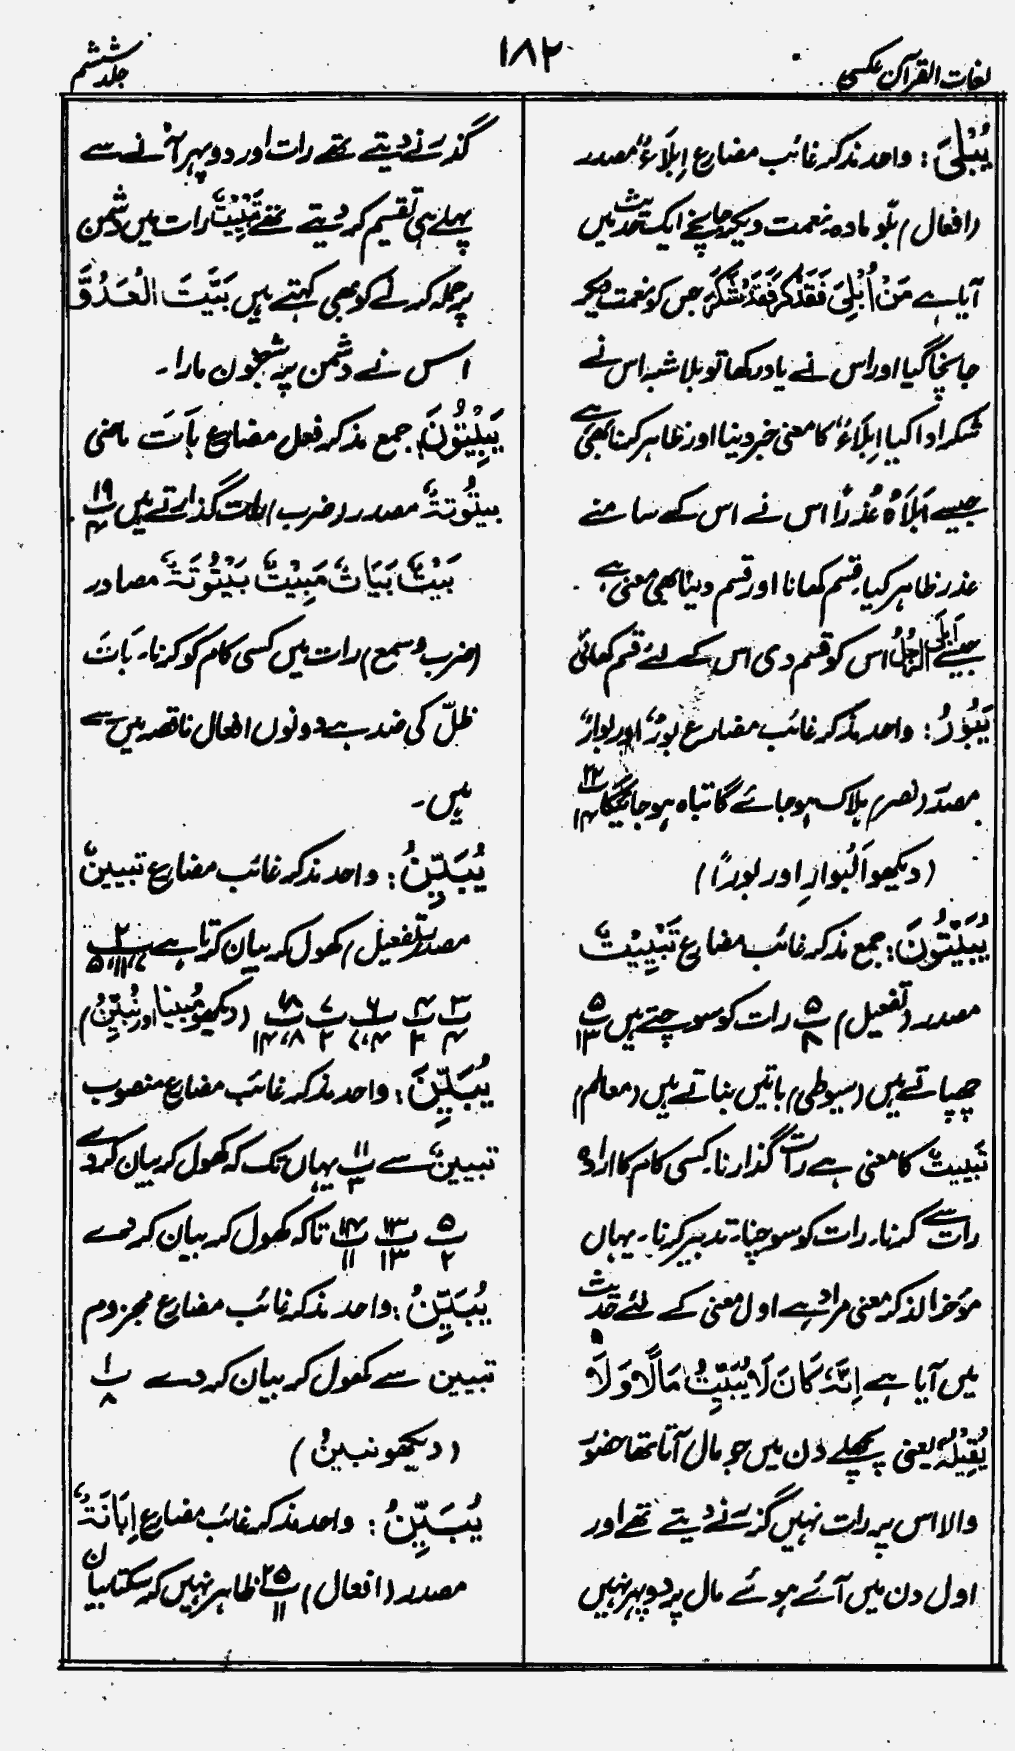 لغات القرآن عکسی
۱۸۲
جلد ششم
یُبْلِیَ : واحد مذکر غائب مضارع اِبْلَاءٌ مصدر
(افعال) بَلْو مادہ۔ نعمت دیکر جانچے ایک حدیث میں
آیا ہے مَنْ اُبْلِیَ فَذَکَرَ فَقَدْ شَکَرَ جس کو نعمت دیکر
جانچا گیا اور اس نے یاد رکھا تو بلا شبہ اس نے
شکر ادا کیا اِبْلَاءٌ کا معنی خبر دینا اور ظاہر کرنا بھی ہے
جیسے اَبْلَاہُ عُذْرًا اس نے اس کے سامنے
عذر ظاہر کیا۔ قسم کھانا اور قسم دینا بھی معنی ہے
جیسے اَبْلَی الرَّجُلَ اس کو قسم دی اس کے لئے قسم کھائی
یَبُوْرُ : واحد مذکر غائب مضارع بَوْرٌ اور بَوَارٌ
مصدر (نصر) ہلاک ہو جائے گا تباہ ہو جائیگا ۲۲/۱۴
(دیکھو اَلْبَوَارِ اور بُورًا)
یُبَیِّتُوْنَ : جمع مذکر غائب مضارع تَبْیِیْتٌ
مصدر (تفعیل) پ ۵/۸ رات کو سوچتے ہیں پ ۵/۱۳
چھپاتے ہیں (سیوطی) باتیں بناتے ہیں (معالم)
تَبْیِیْتٌ کا معنی ہے رات گذارنا۔ کسی کام کا ارادہ
رات سے کرنا۔ رات کو سوچنا۔ تدبیر کرنا۔ یہاں
مؤخر الذکر معنی مراد ہے اول معنی کے لئے حدیث
میں آیا ہے اِنَّہٗ کَانَ لَا یُبَیِّتُ مَالًا وَلَا
یُقِیْلُہٗ یعنی پچھلے دن میں جو مال آتا تھا حضور
والا اس پر رات نہیں گزرنے دیتے تھے اور
اول دن میں آئے ہوئے مال پر دوپہر نہیں
گذرنے دیتے تھے رات اور دوپہر آنے سے
پہلے ہی تقسیم کر دیتے تھے تَبْیِیْتٌ رات میں دشمن
پر حملہ کرنے کو بھی کہتے ہیں بَیَّتَ الْعَدُوَّ
اس نے دشمن پر شبخون مارا۔
یَبِیْتُوْنَ جمع مذکر فعل مضارع بَاتَ ماضی
بیتوتۃٌ مصدر (ضرب) رات گذارتے ہیں پ ۱۹/۴
بَیْتٌ بَیَاتٌ مَبِیْتٌ بَیْتُوْتَۃٌ مصادر
(ضرب و سمع) رات میں کسی کام کو کرنا۔ بَاتَ
ظلّ کی ضد ہے دونوں افعال ناقصہ میں سے
ہیں۔
یُبَیِّنُ : واحد مذکر غائب مضارع تبیینٌ
مصدر (تفعیل) کھول کر بیان کرتا ہے پ ۲/۵،۱۱،۷
پ ۳/۴ پ ۴/۳ پ ۶/۴،۷ پ ۷/۲ پ ۱۸/۸،۱۴ (دیکھو مُبِیْنًا اور نُبَیِّنُ)
یُبَیِّنَ : واحد مذکر غائب مضارع منصوب
تبیینٌ سے پ ۱۱/۳ یہاں تک کہ کھول کر بیان کر دے
پ ۵/۲ پ ۱۳/۱۳ پ ۱۴/۱۱ تاکہ کھول کر بیان کر دے
یُبَیِّنْ : واحد مذکر غائب مضارع مجزوم
تبیین سے کھول کر بیان کر دے پ ۱/۸
(دیکھو نبینُ)
یُبِیْنُ : واحد مذکر غائب مضارع اِبَانَۃٌ
مصدر (افعال) پ ۲۵/۱۱ ظاہر نہیں کر سکتا بیان